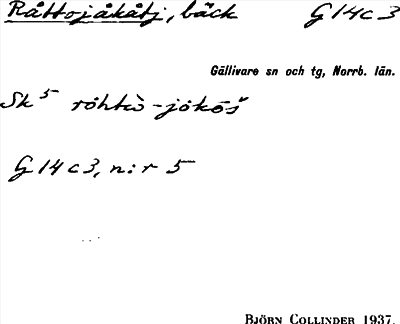 Råttojåkåtj, bäck G14c3
Gällivare sn och tg, Norrb. län.
Sk⁵ ròhtu̇̀-jokōš
G14c3, n:r 5
BJÖRN COLLINDER 1937.